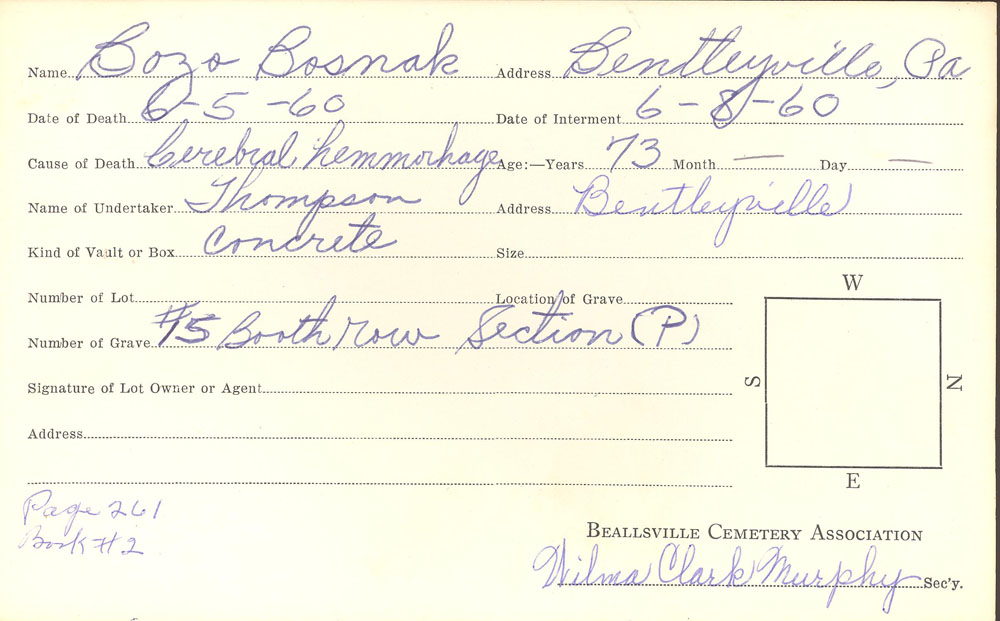 Name Bozo Bosnak Address Bentleyville, Pa
Date of Death 6-5-60 Date of Interment 6-8-60
Cause of Death Cerebral hemmorhage Age:—Years 73 Month — Day —
Name of Undertaker Thompson Address Bentleyville
Kind of Vault or Box Concrete Size
Number of Lot Location of Grave
Number of Grave #5 Booth row Section (P)
Signature of Lot Owner or Agent
Address
W
S N
E
Page 261
Book #2
Beallsville Cemetery Association
Wilma Clark Murphy Sec'y.